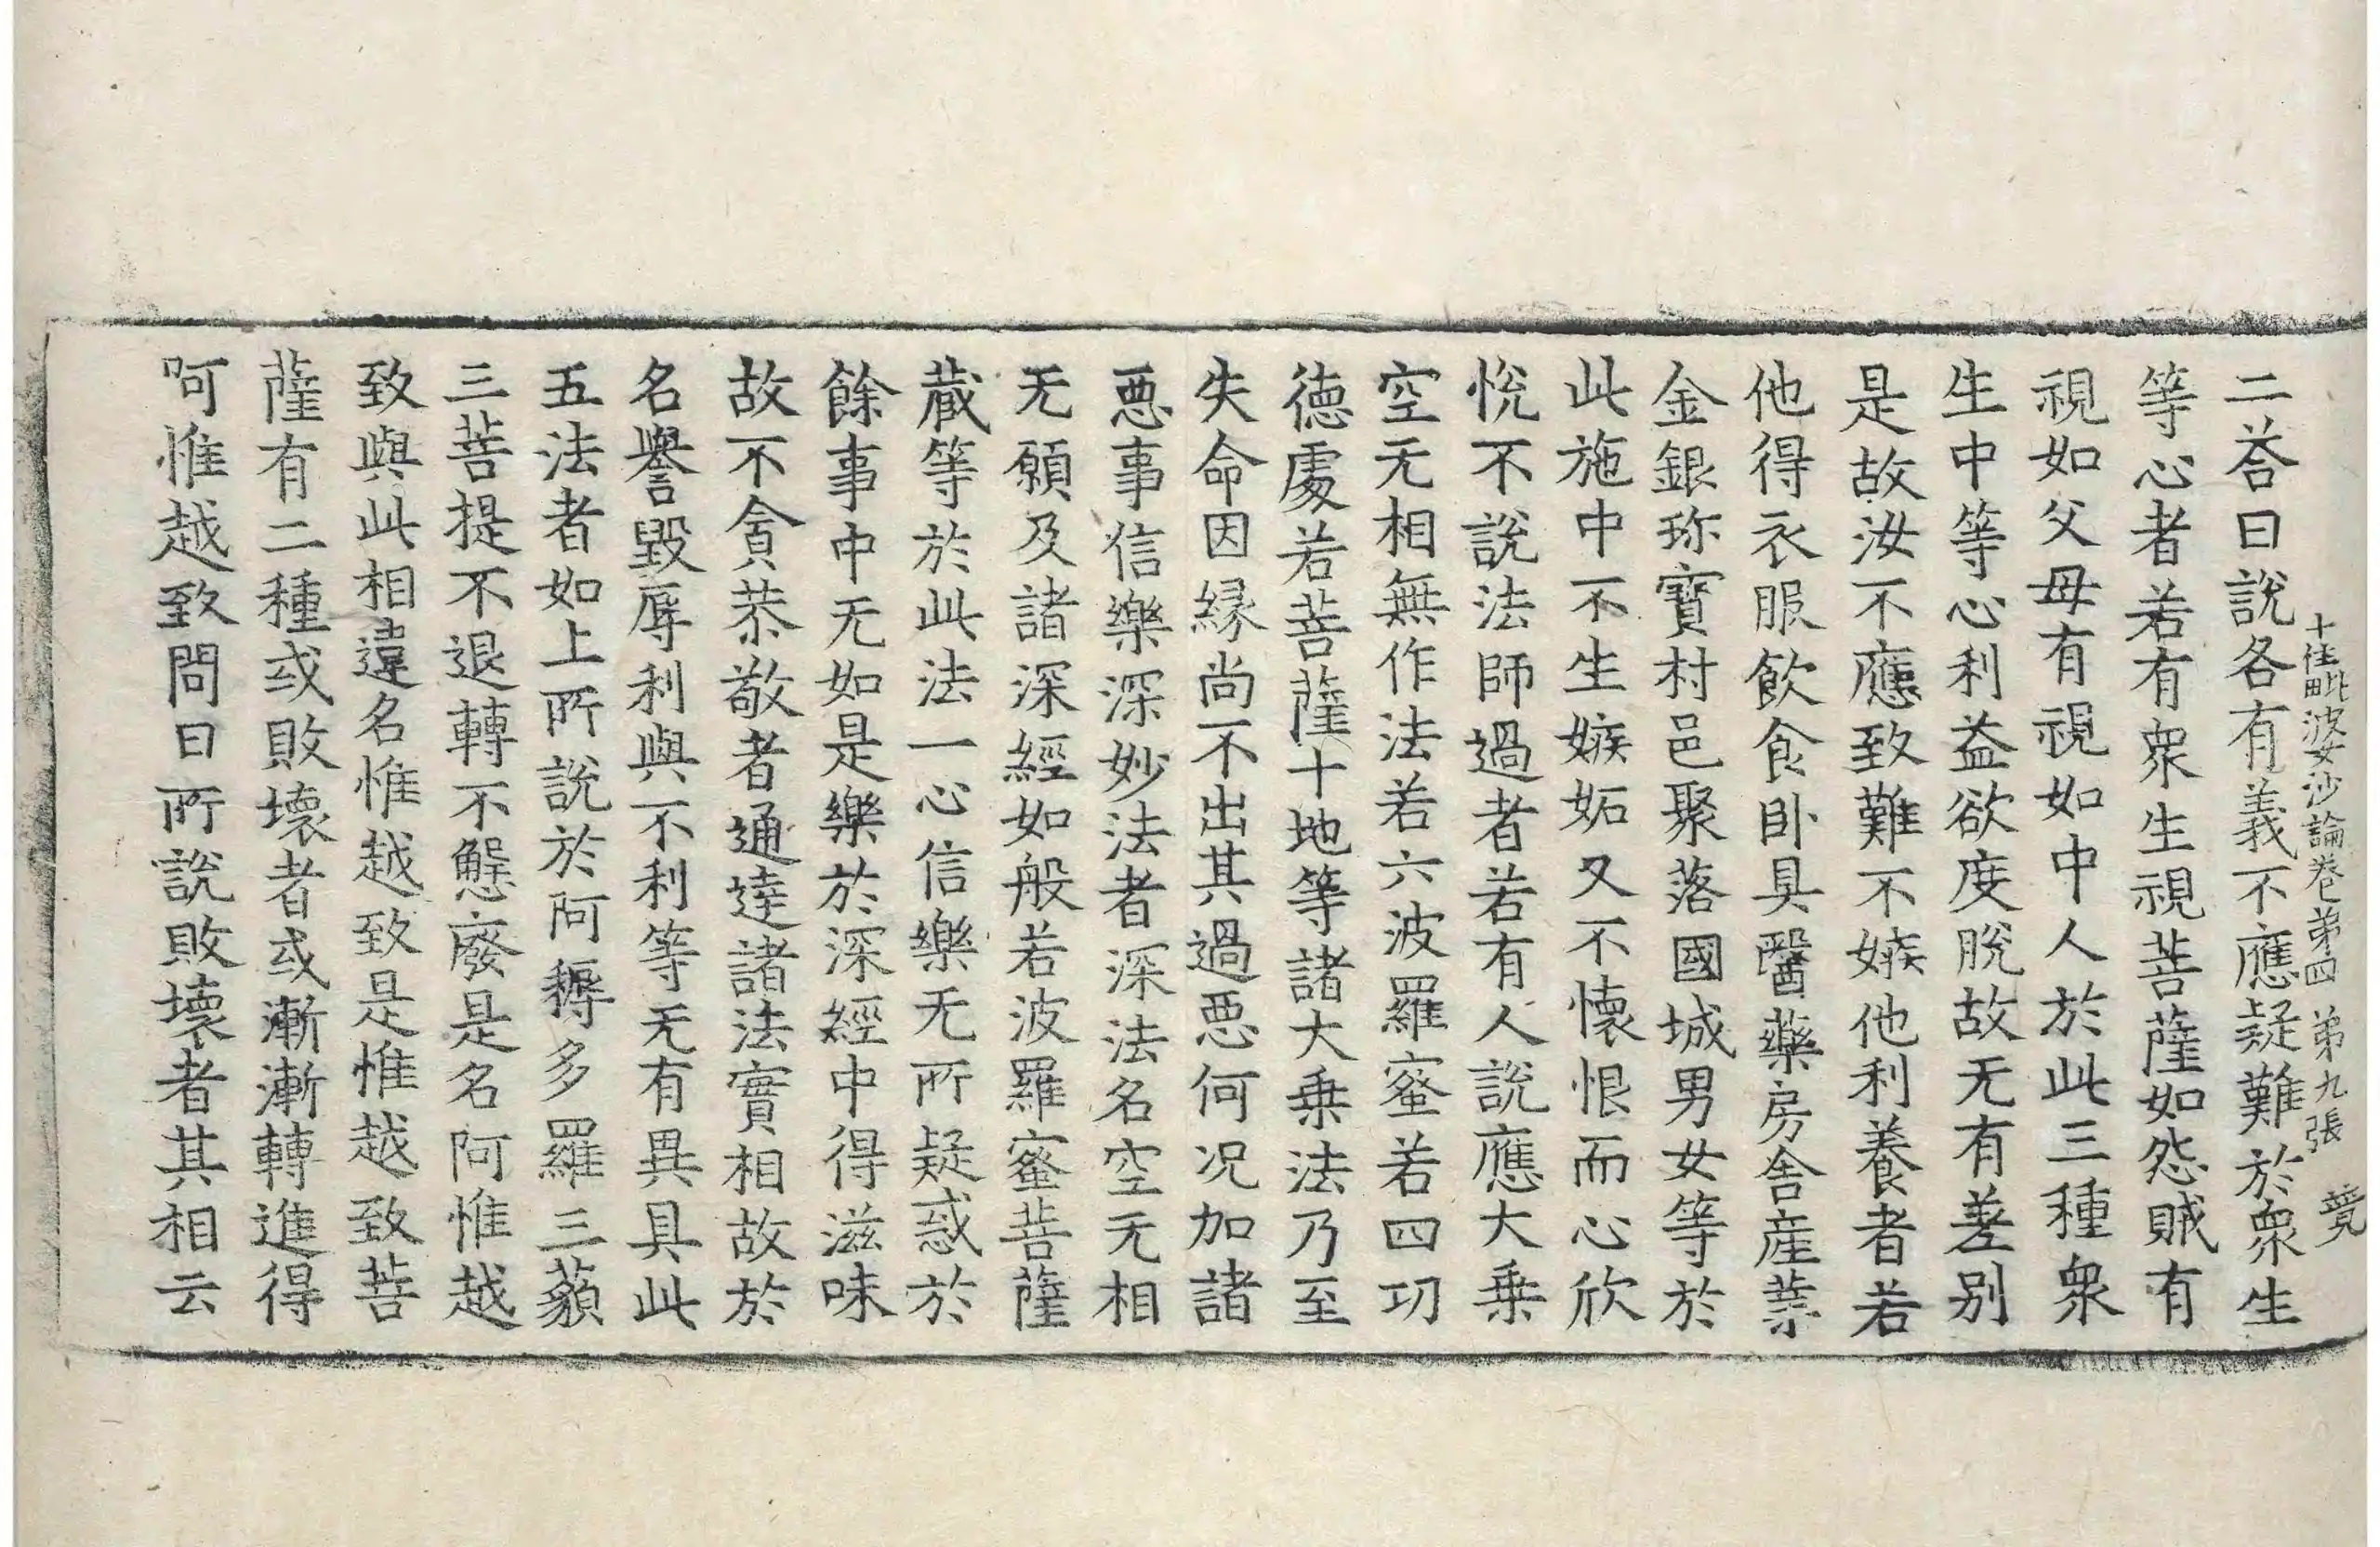 十住毗婆沙論卷苐四 苐九張 竟
二荅曰說各有義不應疑難於衆生
等心者若有衆生視菩薩如怨賊有
視如父母有視如中人於此三種衆
生中等心利益欲度脫故无有差别
是故汝不應致難不嫉他利養者若
他得衣服飮食卧具醫藥房舍産業
金銀珎寶村邑聚落國城男女等於
此施中不生嫉妬又不懷恨而心欣
悅不說法師過者若有人說應大乗
空无相無作法若六波羅蜜若四功
徳處若菩薩十地等諸大乗法乃至
失命因縁尚不出其過惡何况加諸
惡事信樂深妙法者深法名空无相
无願及諸深經如般若波羅蜜菩薩
蔵等於此法一心信樂无所疑惑於
餘事中无如是樂於深經中得滋味
故不貪恭敬者通達諸法實相故於
名譽毀辱利與不利等无有異具此
五法者如上所說於阿耨多羅三藐
三菩提不退轉不懈廢是名阿惟越
致與此相違名惟越致是惟越致菩
薩有二種或敗壞者或漸漸轉進得
阿惟越致問曰所說敗壞者其相云